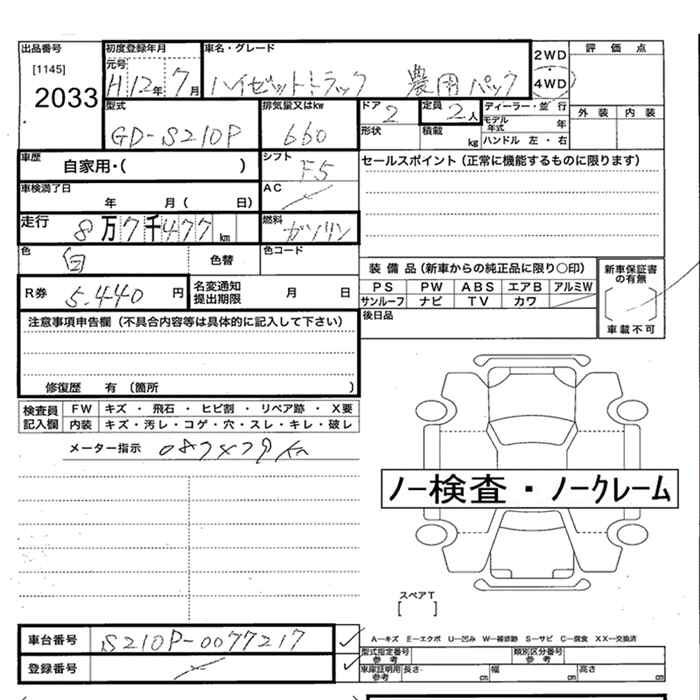 出品番号 初度登録年月 車名・グレード 2WD 評価点
[1145] 元号 4WD
2033 H12年7月 ハイゼットトラック 農園パック 外装 内装
型式 排気量又はkw ドア 2 定員 2人 ディーラー・並行
GD-S210P 660 形状 積載 kg モデル年式 年
ハンドル 左・右
車歴 自家用・( ) シフト F5 セールスポイント (正常に機能するものに限ります)
車検満了日 年 月( 日) AC
走行 8万7千477km 燃料 ガソリン
色 白 色替 色コード
装備品 (新車からの純正品に限り○印) 新車保証書の有無
R券 5,440円 名変通知提出期限 月 日 PS PW ABS エアB アルミW
サンルーフ ナビ TV カワ 車載不可
注意事項申告欄 (不具合内容等は具体的に記入して下さい) 後日品
修復歴 有 (箇所 )
検査員記入欄 FW キズ・飛石・ヒビ割・リペア跡・X要
内装 キズ・汚レ・コゲ・穴・スレ・キレ・破レ
メーター指示 087479km
ノー検査・ノークレーム
スペアT
[ ]
車台番号 S210P-0077217 A―キズ E―エクボ U―凹み W―補修跡 S―サビ C―腐食 XX―交換済
登録番号 型式指定番号 参考 類別区分番号 参考
車庫証明用 参考 長さ cm 幅 cm 高さ cm